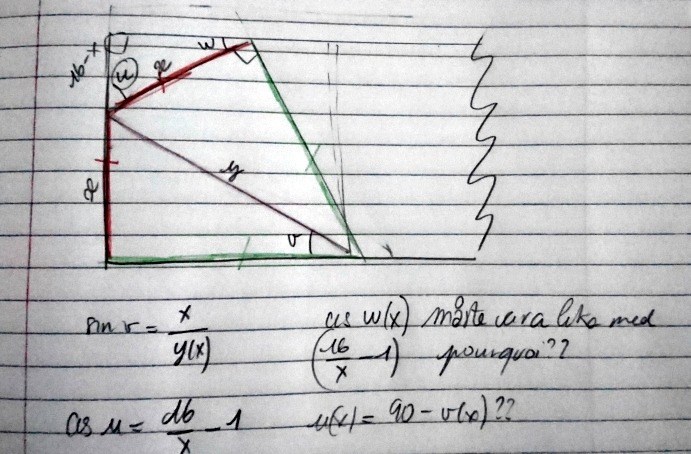 16-x
w
u
x
x
y
v
sin v = x / y(x)
cos w(x) måste vara lika med
(16/x - 1) pourquoi??
cos u = 16/x - 1
u(x) = 90 - v(x) ??